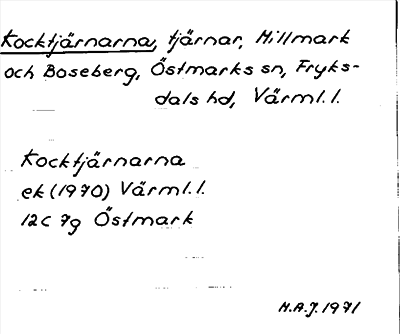 Kocktjärnarna, tjärnar, Millmark
och Boseberg, Östmarks sn, Fryks-
dals hd, Värml. l.
Kocktjärnarna
ek (1970) Värml. l.
12C 7g Östmark
M.A.J. 1971